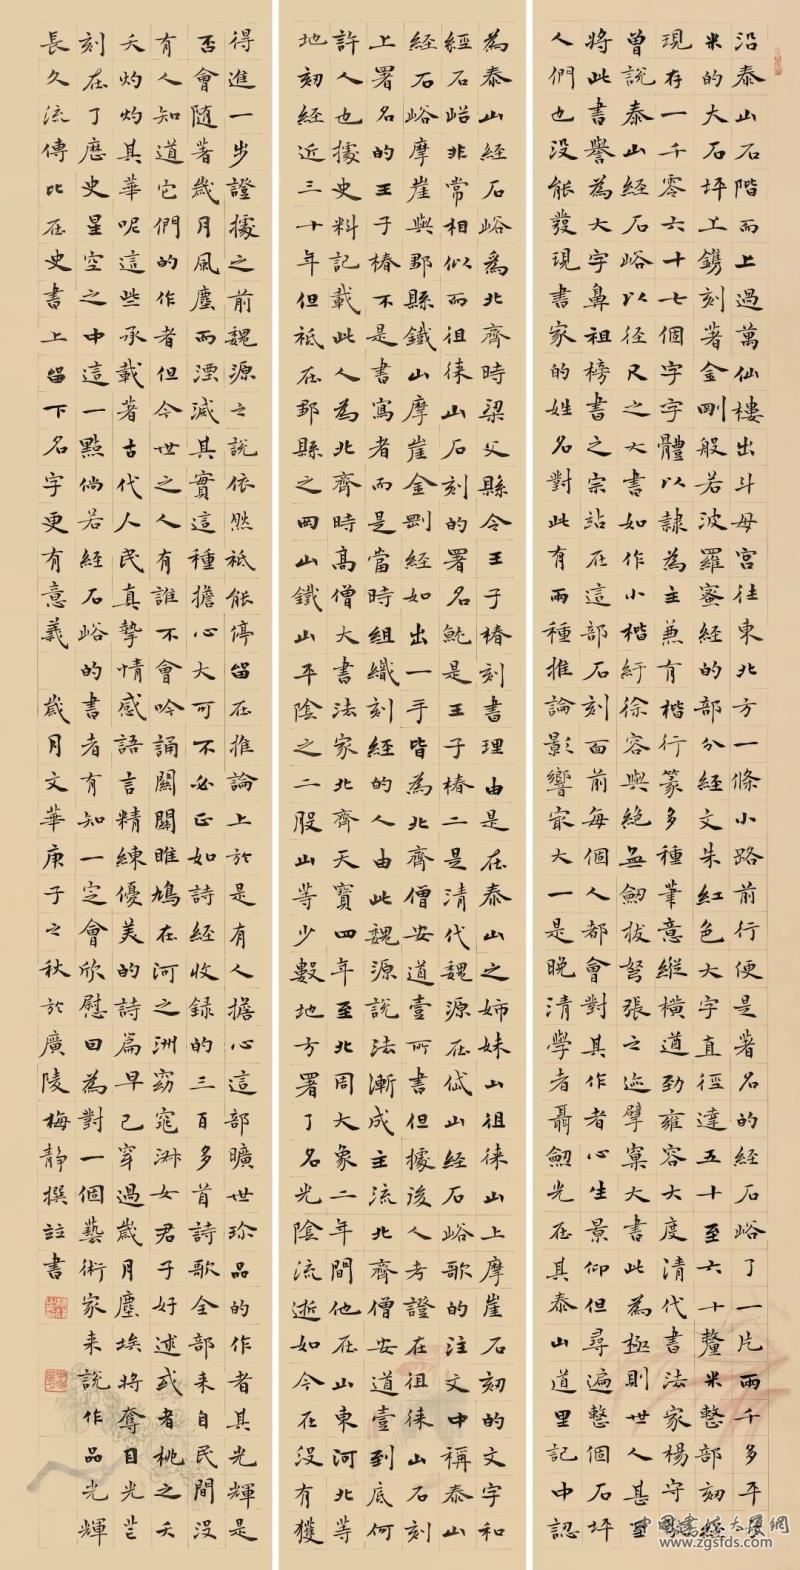 沿泰山石階而上過萬仙樓出斗母宮往東北方一條小路前行便是著名的經石峪了一片兩千多平方
米的大石坪上鐫刻著金剛般若波羅蜜經的部分經文朱紅色大字直徑達五十至六十釐米整部刻經
現存一千零六十七個字字體以隸為主兼有楷行篆多種筆意縱橫遒勁雍容大度清代書法家楊守敬
曾說泰山經石峪以徑尺之大書如作小楷紆徐容與絕無劍拔弩張之迹擘窠大書此為極則世人甚至
將此書譽為大字鼻祖榜書之宗站在這部石刻面前每個人都會對其作者心生景仰但尋遍整個石坪
人們也沒能發現書家的姓名對此有兩種推論影響最大一是晚清學者聶劍光在其泰山道里記中認
為泰山經石峪為北齊時梁父縣令王子椿刻書理由是在泰山之姊妹山徂徠山上摩崖石刻的文字和
經石峪非常相似而徂徠山石刻的署名就是王子椿二是清代魏源在岱山經石峪歌的注文中稱泰山
經石峪摩崖與鄒縣鐵山摩崖金剛經如出一手皆為北齊僧安道壹所書但據後人考證在徂徠山石刻
上署名的王子椿不是書寫者而是當時組織刻經的人由此魏源說法漸成主流北齊僧安道壹到底何
許人也據史料記載此人為北齊時高僧大書法家北齊天寶四年至北周大象二年間他在山東河北等
地刻經近三十年但祇在鄒縣之岡山鐵山平陰之二股山等少數地方署了名光陰流逝如今在沒有獲
得進一步證據之前魏源之說依然祇能停留在推論上於是有人擔心這部曠世珍品的作者其光輝是
否會隨著歲月風塵而湮滅其實這種擔心大可不必正如詩經收録的三百多首詩歌全部来自民間沒
有人知道它們的作者但今世之人有誰不會吟誦關關雎鳩在河之洲窈窕淑女君子好逑或者桃之夭
夭灼灼其華呢這些承載著古代人民真摯情感語言精練優美的詩篇早已穿過歲月塵埃將奪目光芒
刻在了歷史星空之中這一點倘若經石峪的書者有知一定會欣慰因為對一個藝術家来說作品光輝
長久流傳比在史書上留下名字更有意義 歲月文華庚子之秋於廣陵梅靜撰並書
www.zgsfds.com